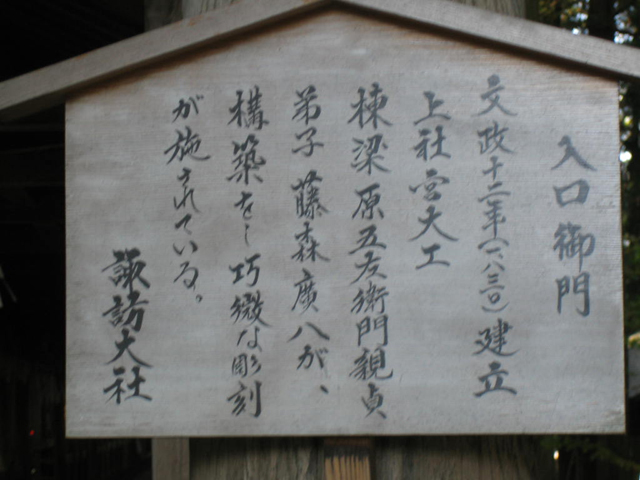 入口御門
文政十二年(一八三〇)建立
上社宮大工
棟梁原五左衛門親貞
弟子藤森廣八が、
構築をし巧微な彫刻
が施されている。
諏訪大社